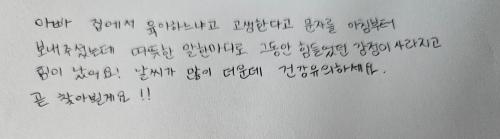 아빠 집에서 육아하느냐고 고생한다고 문자를 아침부터
보내주셨는데 따뜻한 말한마디로 그동안 힘들었던 감정이 사라지고
힘이 났어요! 날씨가 많이 더운데 건강유의하세요.
곧 찾아뵐게요 !!